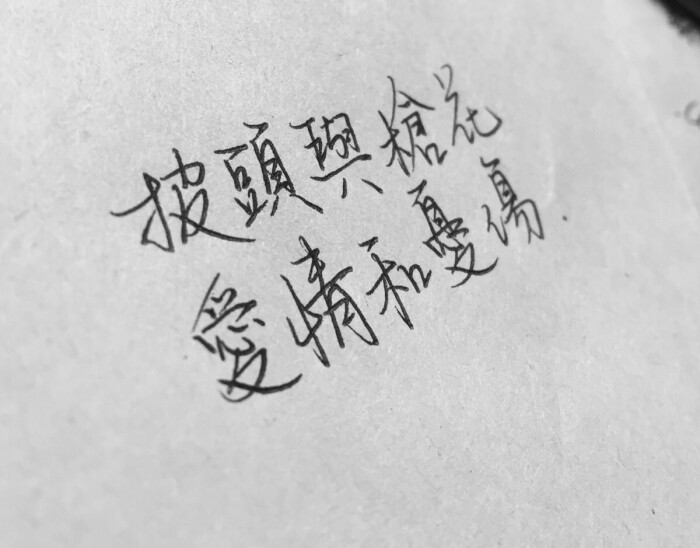 披頭與槍花
愛情和憂傷.